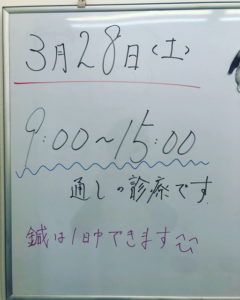 3月28日(土)
9:00~15:00
通しの診療です
鍼は1日中できます^^